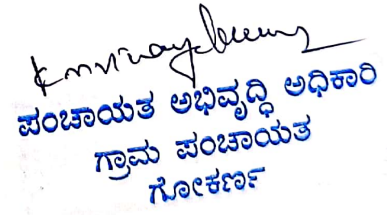 ಪಂಚಾಯತ ಅಭಿವೃದ್ಧಿ ಅಧಿಕಾರಿ
ಗ್ರಾಮ ಪಂಚಾಯತ
ಗೋಕರ್ಣ